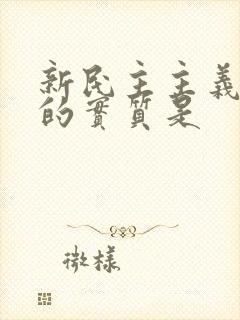 新民主主義
的實質是
微樣